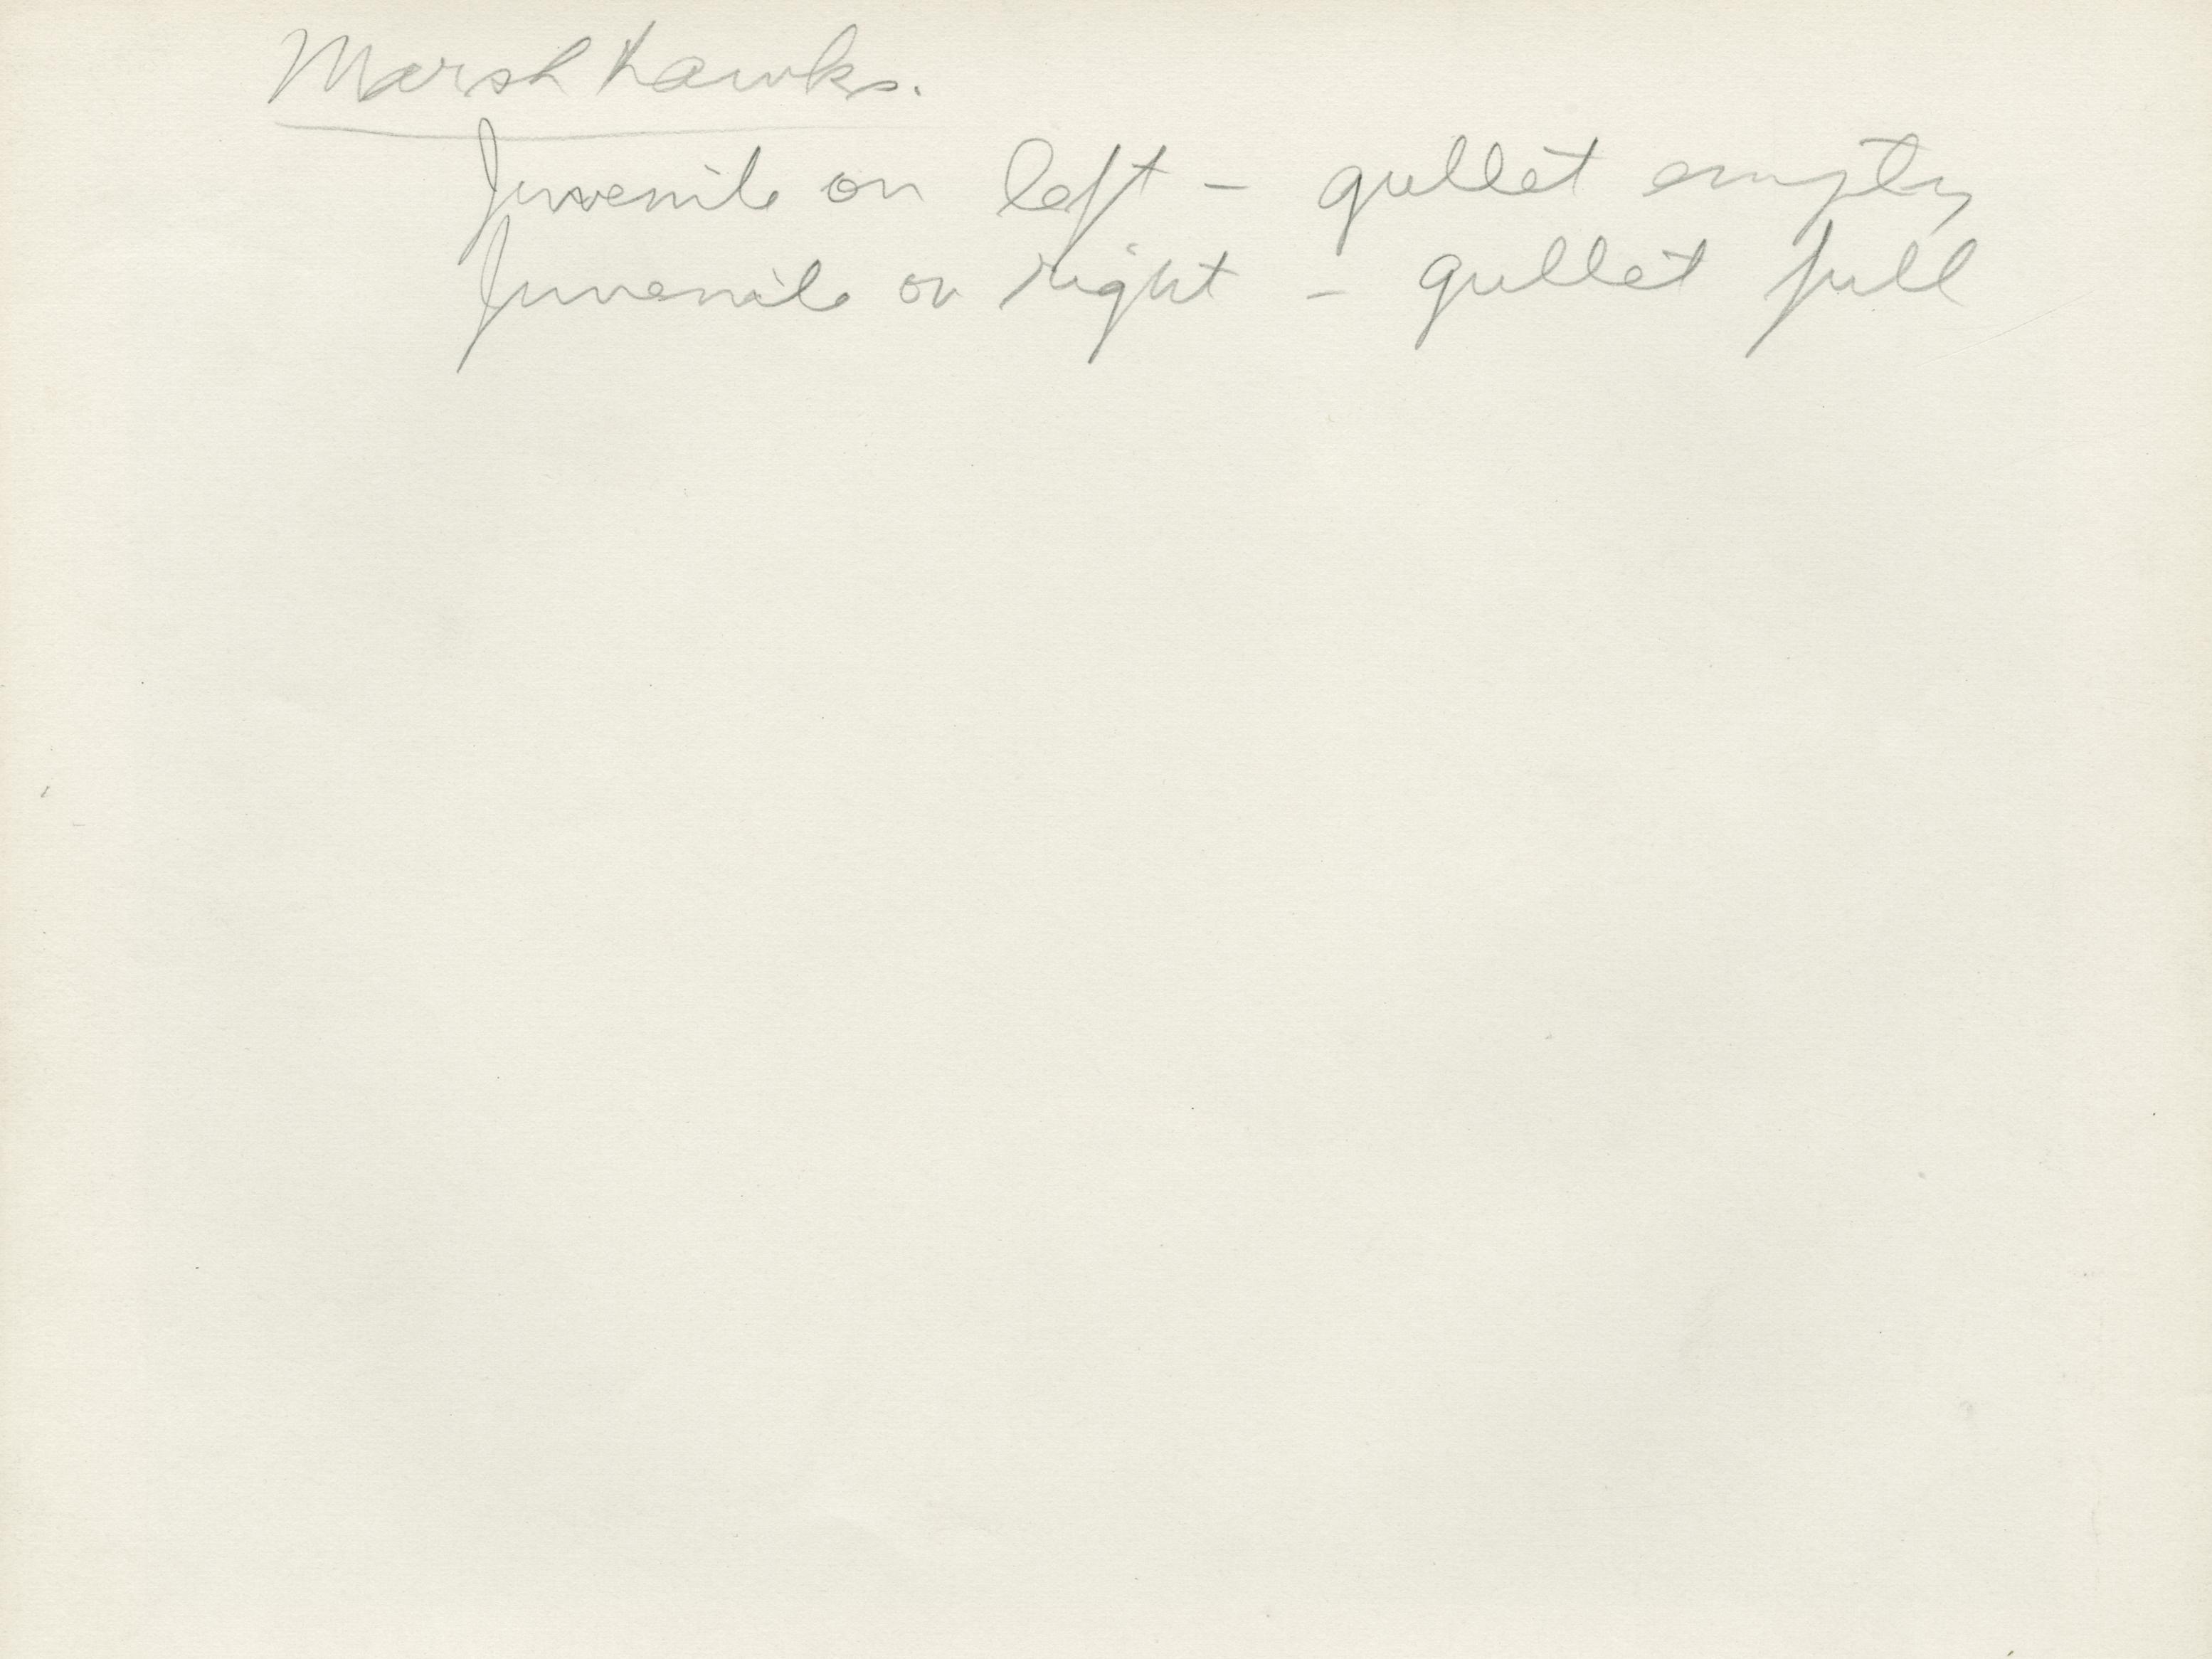 Marsh hawks.
Juvenile on left - gullet empty
Juvenile on right - gullet full